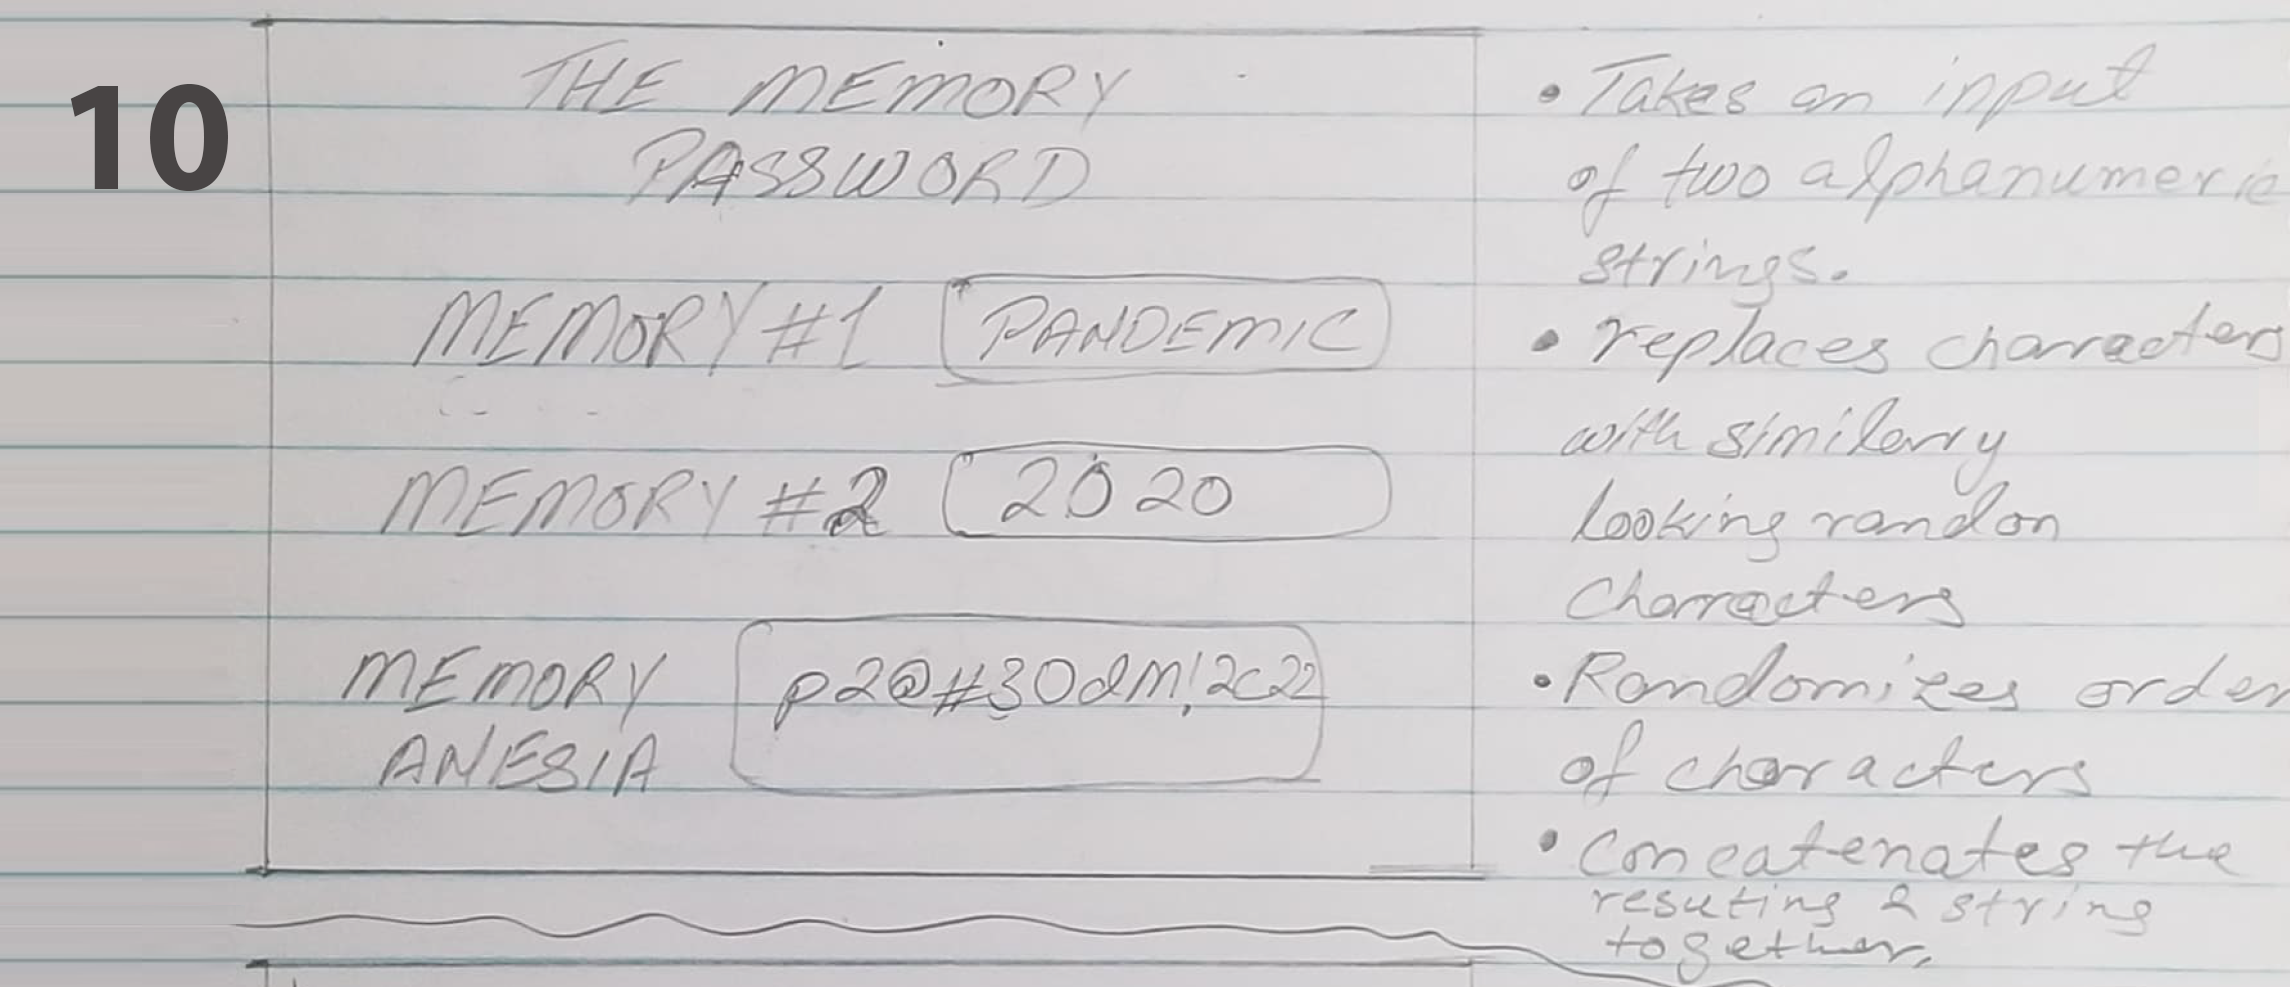 10
THE MEMORY
PASSWORD
MEMORY #1 PANDEMIC
MEMORY #2 2020
MEMORY p2@#30dM!2c22
ANESIA
• Takes an input
of two alphanumeric
strings.
• replaces characters
with similarry
looking randon
characters
• Randomizes order
of characters
• Concatenates the
resuting 2 string
together.